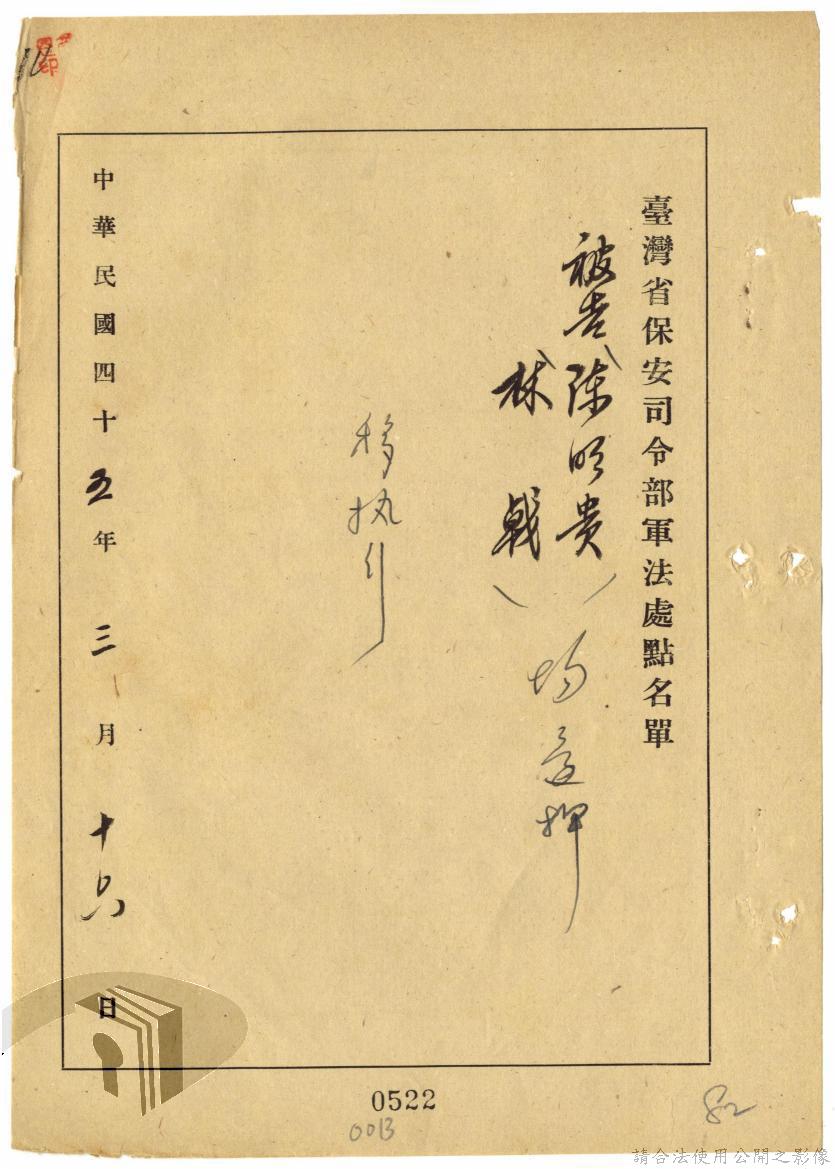 臺灣省保安司令部軍法處點名單
被告 陳明貴
林戟
均還押
移執行
中華民國四十五年三月十六日
0522
00B
82
請合法使用公開之影像